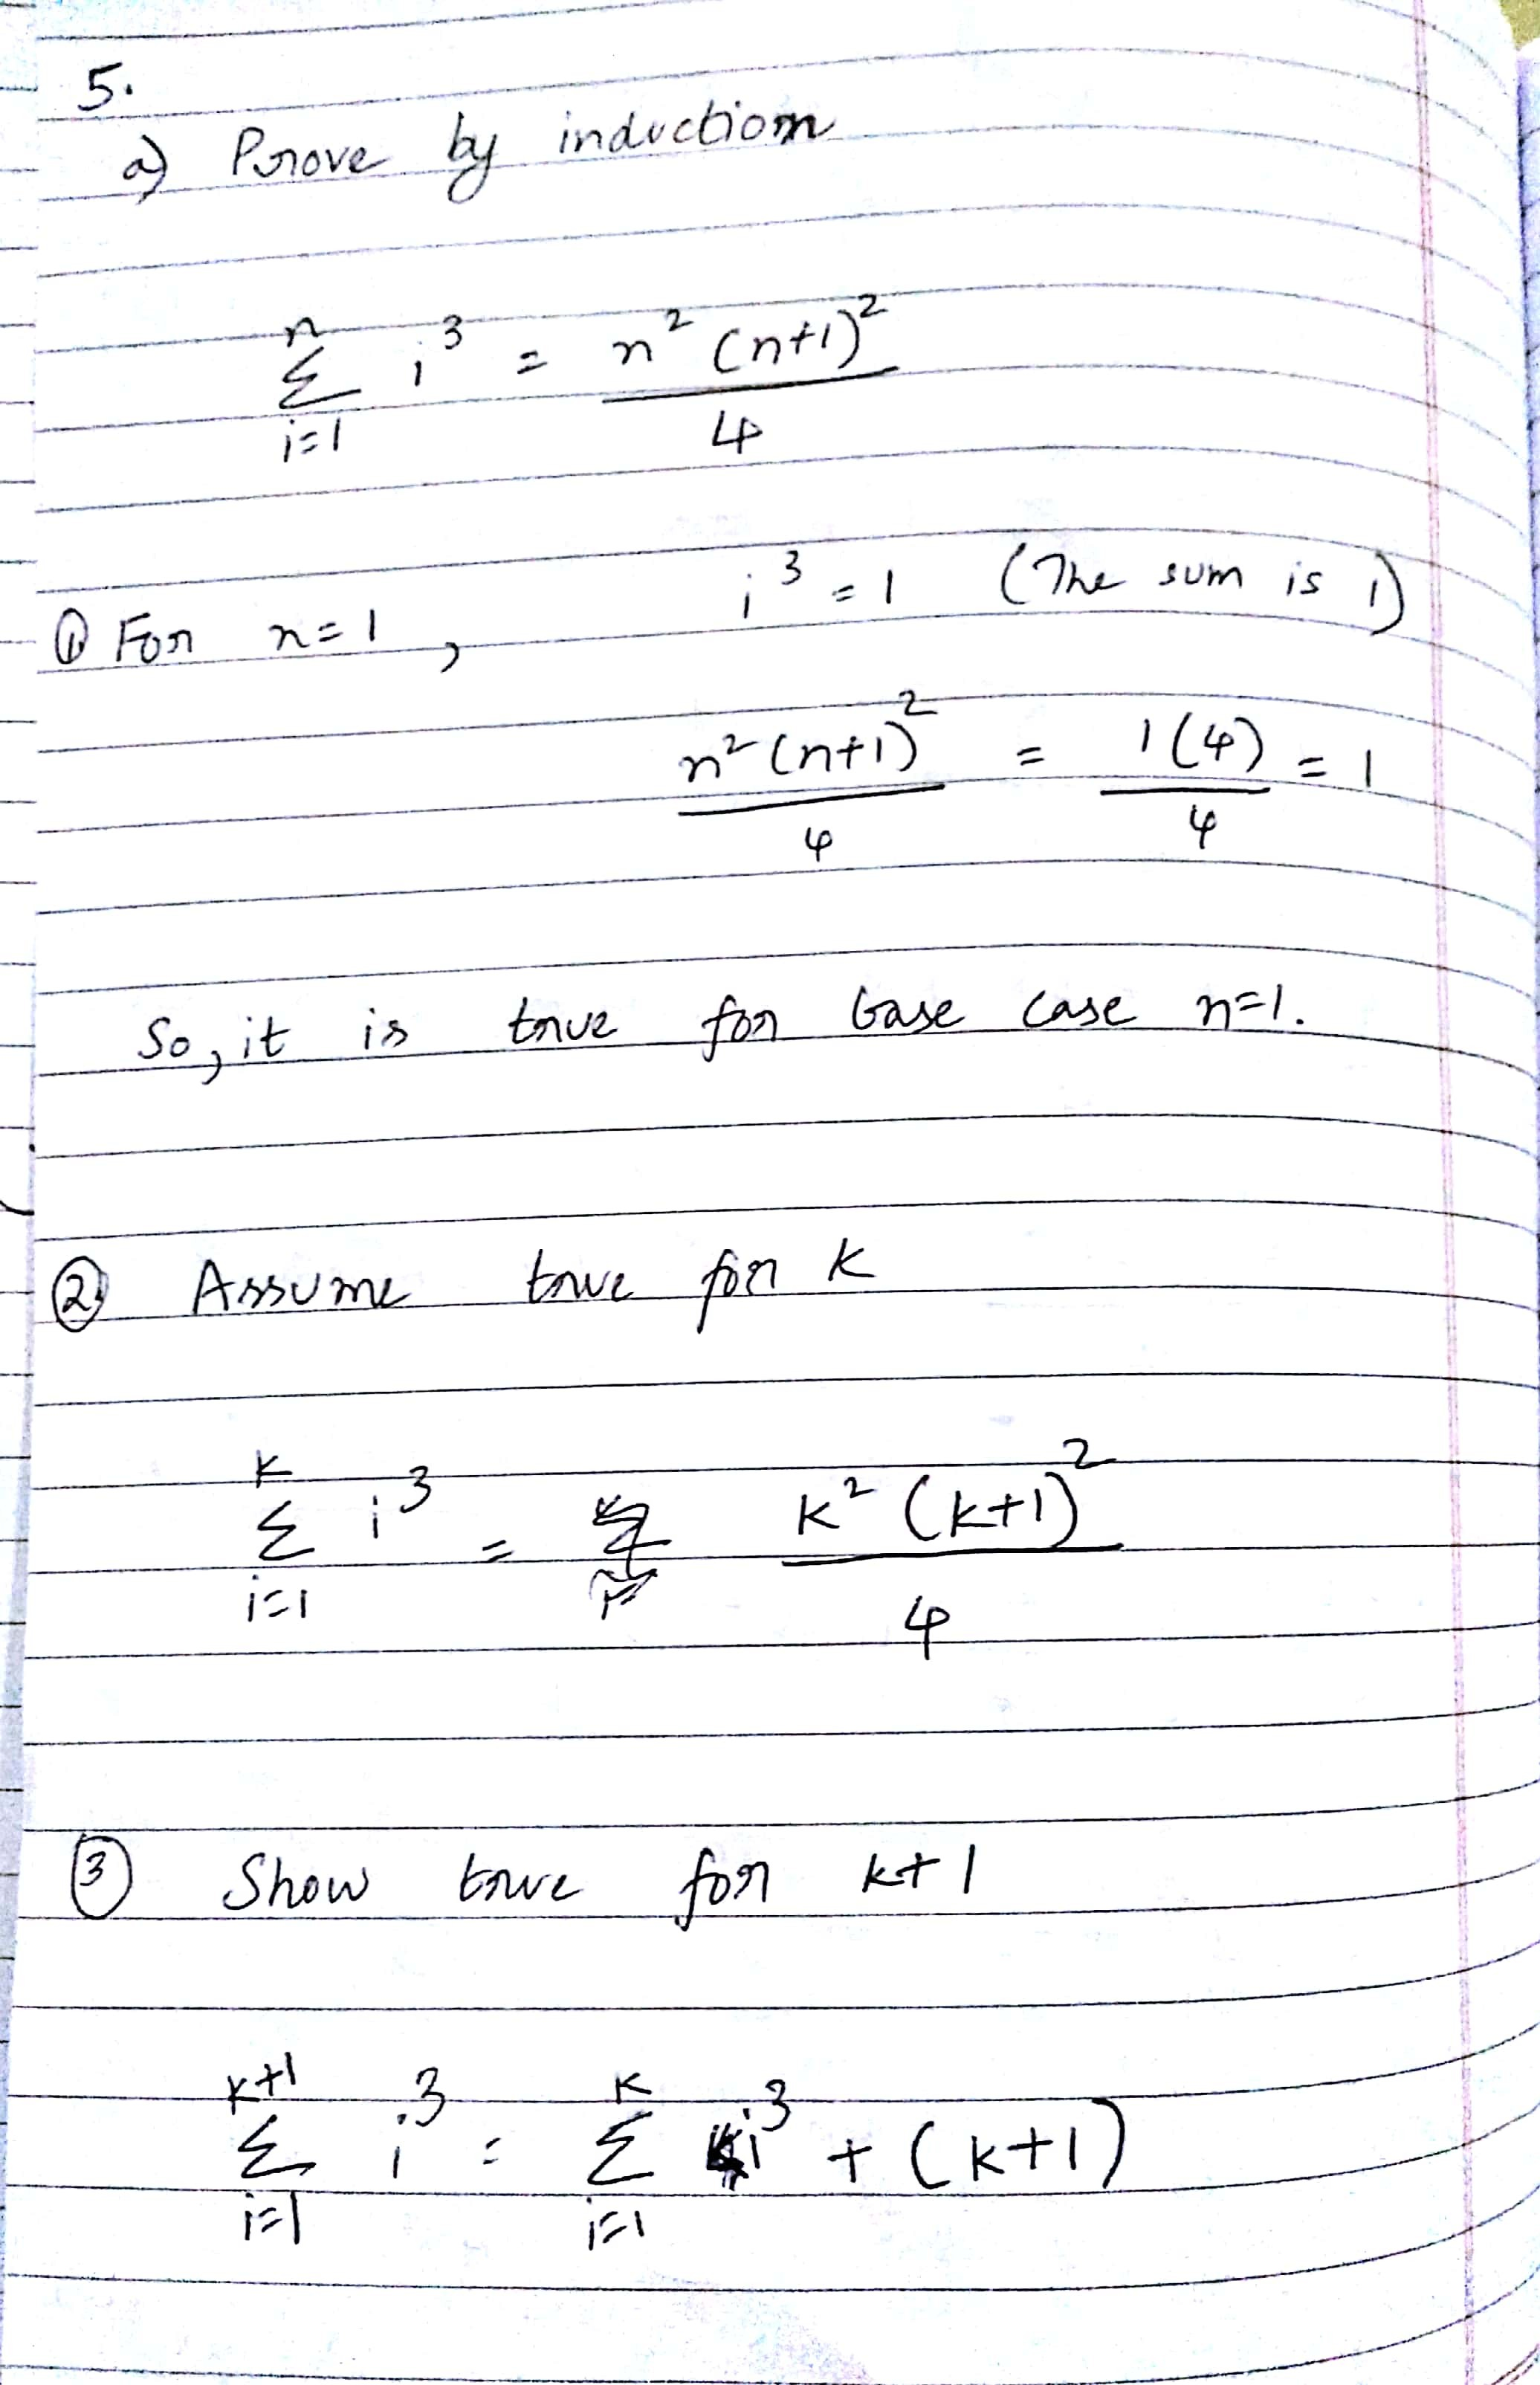 5.
a) Prove by induction
n
Σ i³ = n² (n+1)²
i=1 4
① For n=1, i³ = 1 (The sum is 1)
n² (n+1)² / 4 = 1(4) / 4 = 1
So, it is true for base case n=1.
② Assume true for k
k
Σ i³ = k² (k+1)²
i=1 4
③ Show true for k+1
k+1 k
Σ i³ = Σ i³ + (k+1)
i=1 i=1